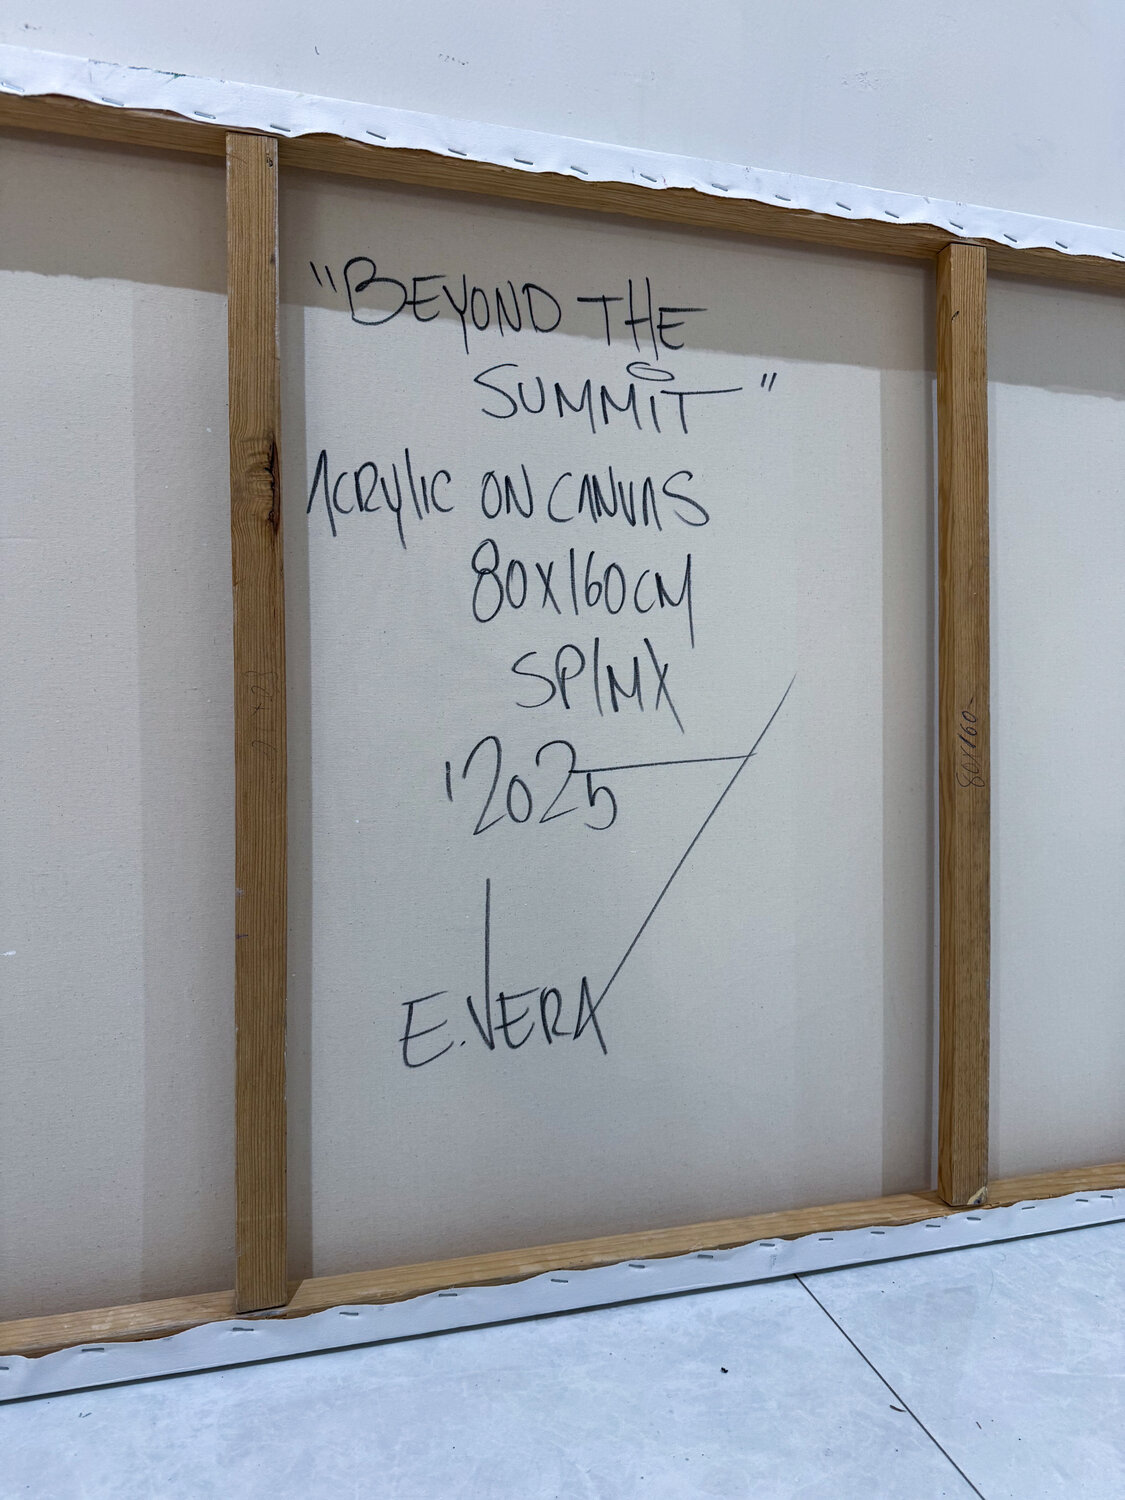 "BEYOND THE
SUMMIT"
ACRYLIC ON CANVAS
80X160CM
SP/MX
'2025
E.VERA
80X160-